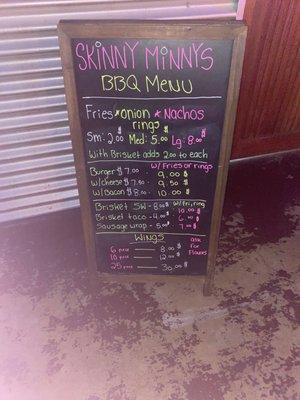 SKINNY MINNYS
BBQ MENU
Fries * onion * Nachos
rings
Sm: 2.00 $ Med: 5.00 $ Lg: 8.00 $
With Brisket adds 2.00 to each
W/ Fries or rings
Burger $7.00 9.00 $
W/cheese $7.50 9.50 $
W/Bacon $8.00 10.00 $
W/fri, ring
Brisket SW - 8.00 $ 10.00 $
Brisket taco - 4.00 $ 6.00 $
Sausage wrap - 5.00 $ 7.00 $
WINGS
6 piece 8.00 $
10 piece 12.00 $
25 piece 30.00 $
ask
For
Flavors